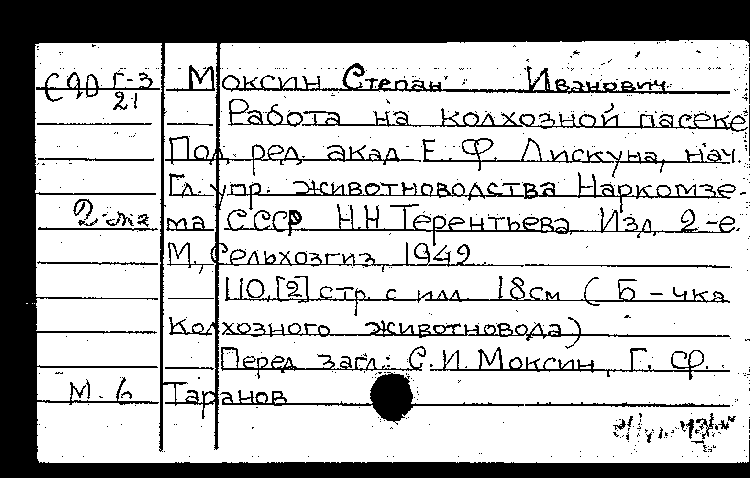 С90 Г-3
21
Моксин Степан Иванович
Работа на колхозной пасеке
Под. ред. акад Е. Ф. Лискуна, нач.
Гл. упр. животноводства Наркомзе-
2-ое
ма СССР Н.Н Терентьева Изд, 2-е.
М., Сельхозгиз, 1942
110,[2] стр. с илл. 18см ( Б - чка
Колхозного животновода)
Перед загл.: С. И. Моксин, Г. Ф.
М. 6 Таранов